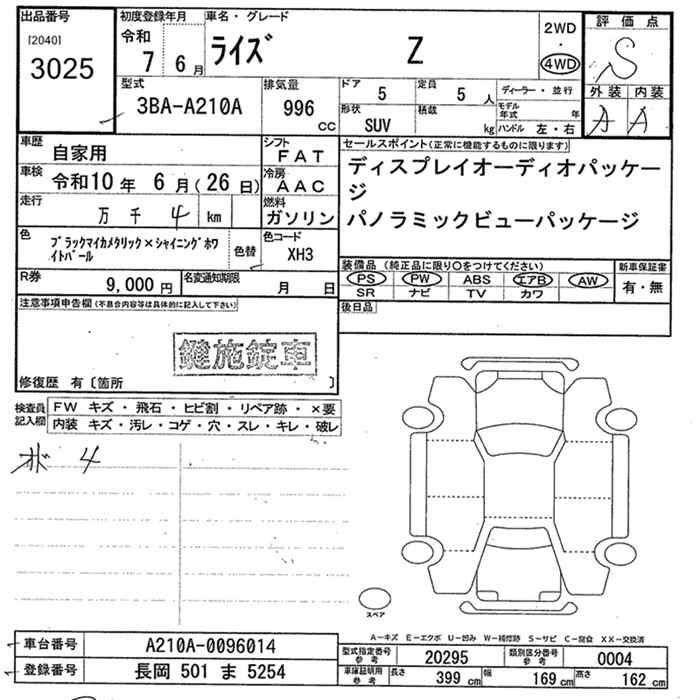 出品番号
[2040]
3025
初度登録年月
令和
7 6月
車名・グレード
ライズ Z
2WD
・
4WD
評価点
S
外装 内装
A A
型式
3BA-A210A
排気量
996
cc
ドア
5
形状
SUV
定員
5 人
積載
kg
ディーラー・並行
モデル年式 年
ハンドル 左・右
車歴
自家用
車検
令和10年 6月(26日)
走行
万 千 4 km
色
ブラックマイカメタリック×シャイニングホワ
イトパール
色替
シフト
FAT
冷房
AAC
燃料
ガソリン
色コード
XH3
R券
9,000円
名変通知期限
月 日
セールスポイント(正常に機能するものに限ります)
ディスプレイオーディオパッケー
ジ
パノラミックビューパッケージ
装備品(純正品に限り○をつけてください)
PS PW ABS エアB AW
SR ナビ TV カワ
新車保証書
有・無
後日品
注意事項申告欄(不具合内容等は具体的に記入して下さい)
鍵施錠車
修復歴 有〔箇所 〕
検査員
記入欄
FW キズ・飛石・ヒビ割・リペア跡・×要
内装 キズ・汚レ・コゲ・穴・スレ・キレ・破レ
4
スペア
A−キズ E−エクボ U−凹み W−補修跡 S−サビ C−腐食 XX−交換済
車台番号
A210A-0096014
登録番号
長岡 501 ま 5254
型式指定番号
参考
20295
類別区分番号
参考
0004
車庫証明用
参考
長さ 399 cm
幅 169 cm
高さ 162 cm